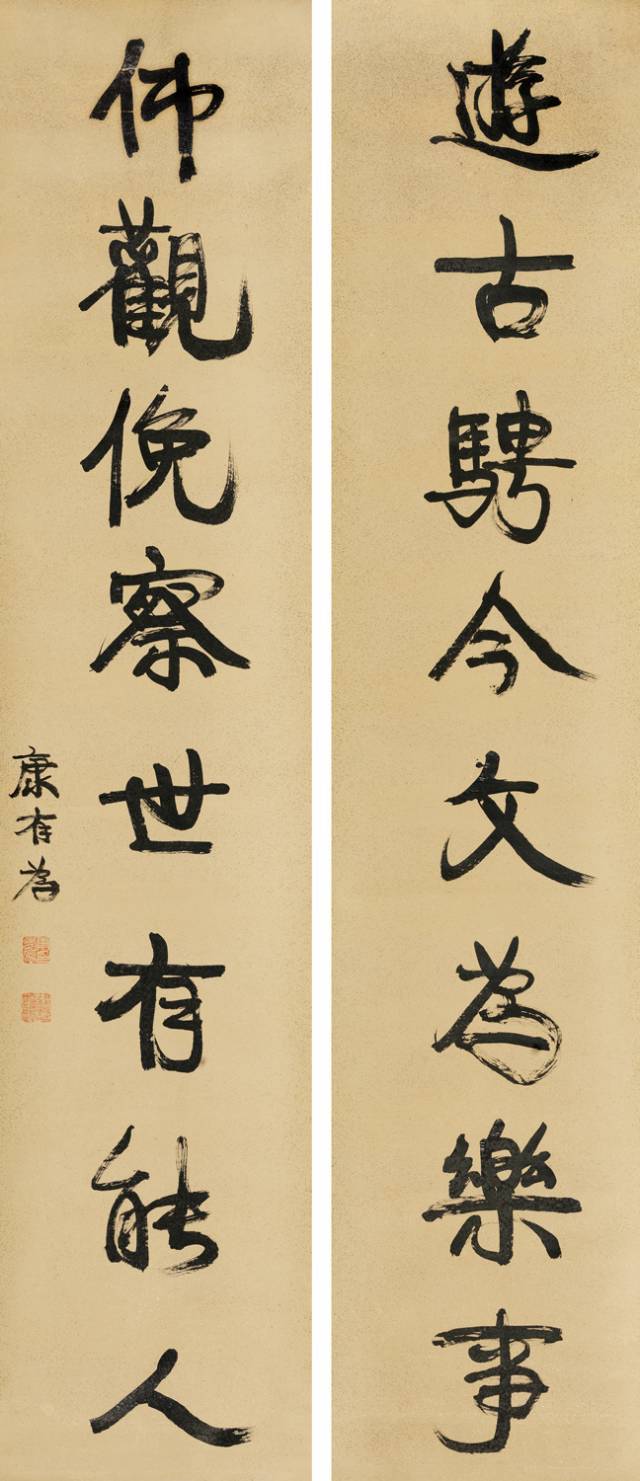 遊古騁今文為樂事
仰觀俛察世有能人
康有為